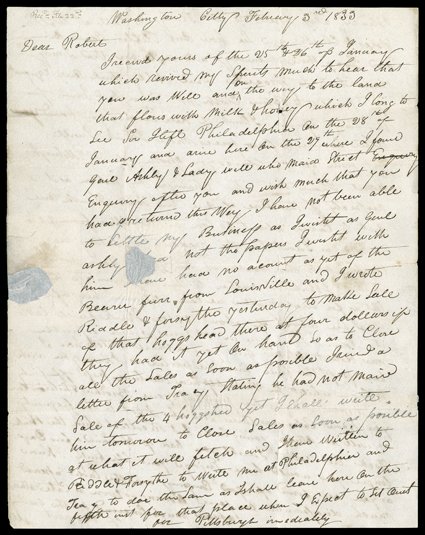 Washington Citty February 3rd 1833
Dear Robert
I recend yours of the 25th & 26th of January
which revived my Spirits much to hear that
you was Well and on the way to the land
that flows with Milk & honey which I long to
See Sir I left Philadelphia On the 28th of
January and arive here On the 29th where I found
Genl Ashly & Lady well who Maid Street Enquiry
Enquiry after you and wish much that you
had returned this Way I have not been able
to Settle my Business as I wisht as Genl
ashly had not the papers I wisht with
him I have had no acount as yet of the
Beavir furr from Louisville and I wrote
Riddle & forsythe yesterday to Make Sale
of that hoggshead there at four dollars if
they had it yet On hand So as to Close
ale the Sales as Soon as posible I recd a
letter from Tracy Stating he had not Maid
Sale of the 4 hoggshed yet I Shall write
him tomorrow to Close Sales as soon as posible
at what it will fetch and I have Written to
Riddle & Forsythe to Write Me at Philadelphia and
Tracy to doe the Same as I shall leave here On the
fifth inst for that place when I Expect to Set Out
for Pittsburgh imediately